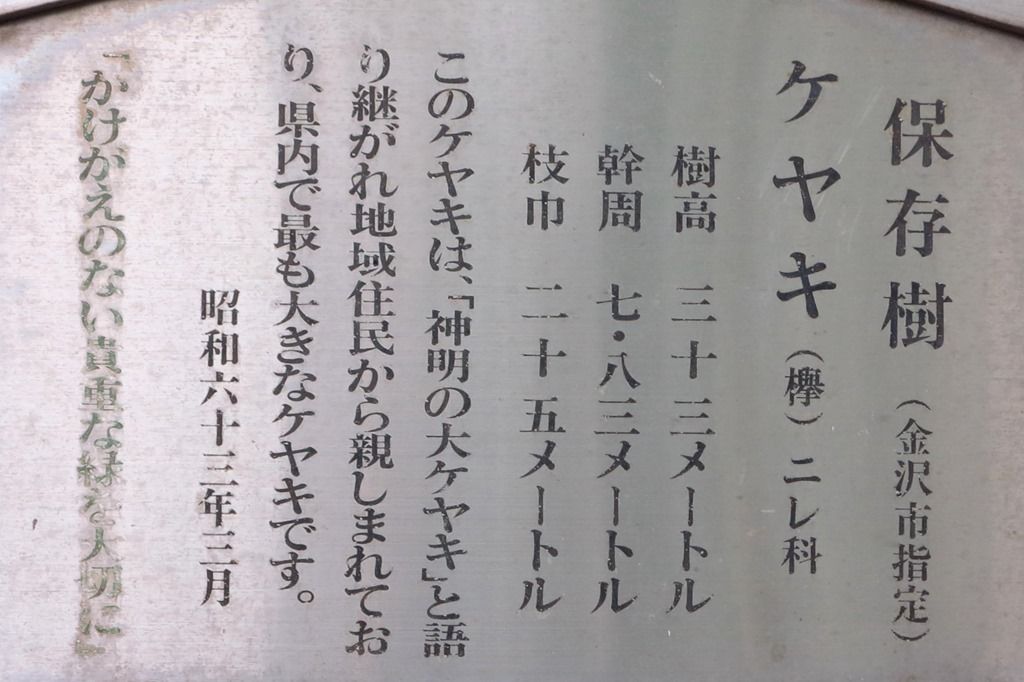 保存樹（金沢市指定）
ケヤキ（欅）ニレ科
樹高 三十三メートル
幹周 七・八三メートル
枝巾 二十五メートル
このケヤキは、「神明の大ケヤキ」と語
り継がれ地域住民から親しまれてお
り、県内で最も大きなケヤキです。
昭和六十三年三月
「かけがえのない貴重な緑を大切に」